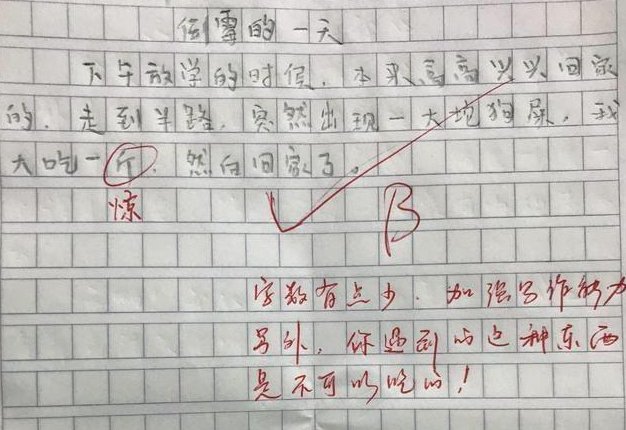 倒霉的一天
下午放学的时候，本来高高兴兴回家
的，走到半路，突然出现一大坨狗屎，我
大吃一斤，然后回家了。
惊
B
字数有点少，加强写作能力
另外，你遇到的这种东西
是不可以吃的！